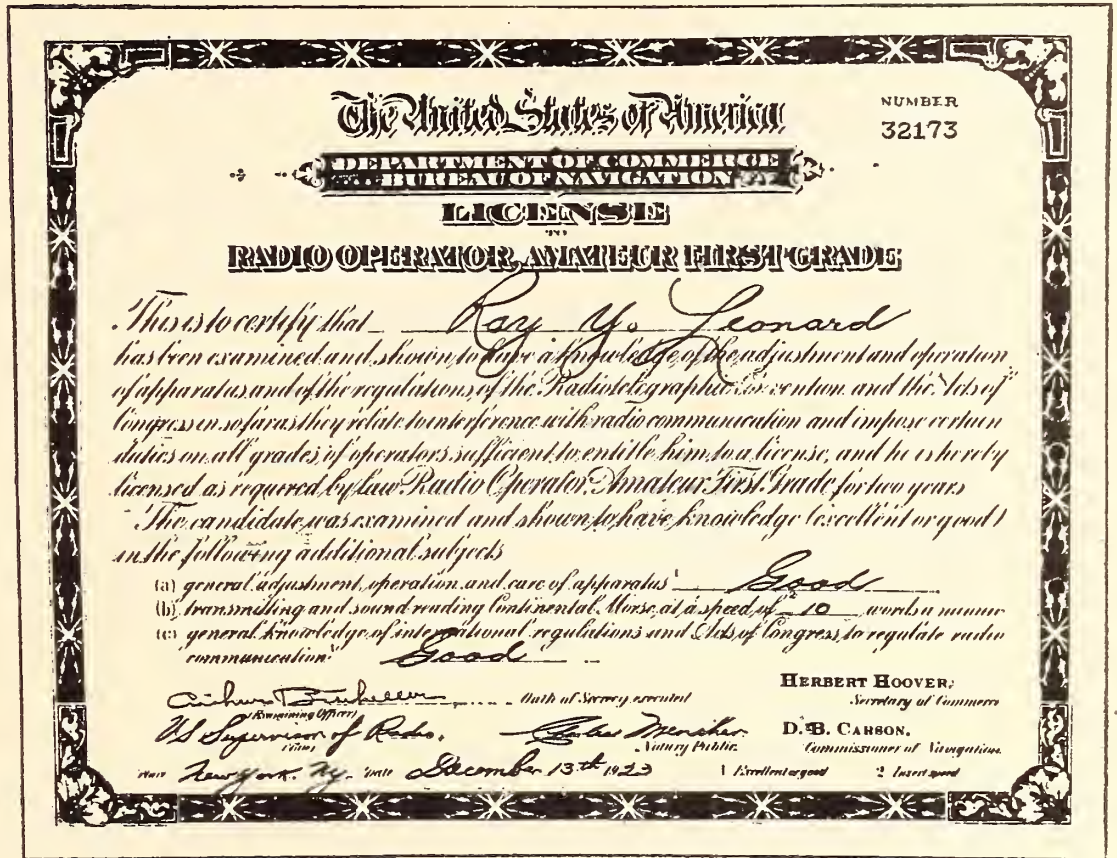 NUMBER
32173
The United States of America
DEPARTMENT OF COMMERCE
BUREAU OF NAVIGATION
LICENSE
TO
RADIO OPERATOR, AMATEUR FIRST GRADE
This is to certify that Ray Y. Leonard
has been examined and shown to have a knowledge of the adjustment and operation
of apparatus and of the regulations of the Radiotelegraphic Convention and the Acts of
Congress in so far as they relate to interference with radio communication and impose certain
duties on all grades of operators sufficient to entitle him to a license, and he is hereby
licensed as required by law Radio Operator Amateur First Grade for two years
The candidate was examined and shown to have knowledge (excellent or good)
in the following additional subjects
(a) general adjustment, operation and care of apparatus 1 Good
(b) transmitting and sound reading Continental Morse at a speed of 2 10 words a minute
(c) general knowledge of international regulations and Acts of Congress to regulate radio
communication 1 Good
Oath of Secrecy executed
HERBERT HOOVER,
Secretary of Commerce
(Examining Officer)
US Supervisor of Radio.
Notary Public.
D. B. CARSON,
Commissioner of Navigation.
Place New York. Ny. Date December 13th 1923 1 Excellent or good 2 Insert speed